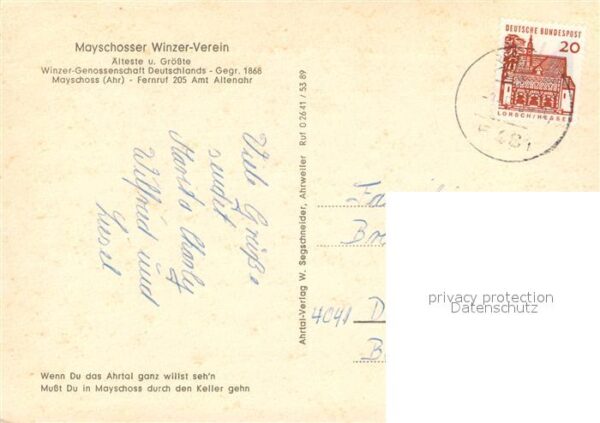 Mayschosser Winzer-Verein
Älteste u. Größte
Winzer-Genossenschaft Deutschlands - Gegr. 1868
Mayschoss (Ahr) - Fernruf 205 Amt Altenahr
Viele Grüße
Wilfried und
Liesel
Wenn Du das Ahrtal ganz willst seh'n
Mußt Du in Mayschoss durch den Keller gehn
Ahrtal-Verlag W. Segschneider, Ahrweiler Ruf 02641/5389
DEUTSCHE BUNDESPOST
20
LORSCH/HESSEN
481
4041 D
privacy protection
Datenschutz